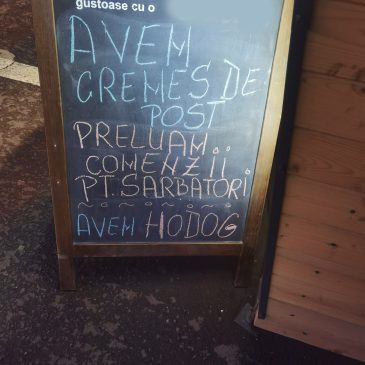 gustoase cu o
AVEM
CREMES DE
POST
PRELUAM..
COMENZII
PT. SARBATORI.
AVEM HODOG